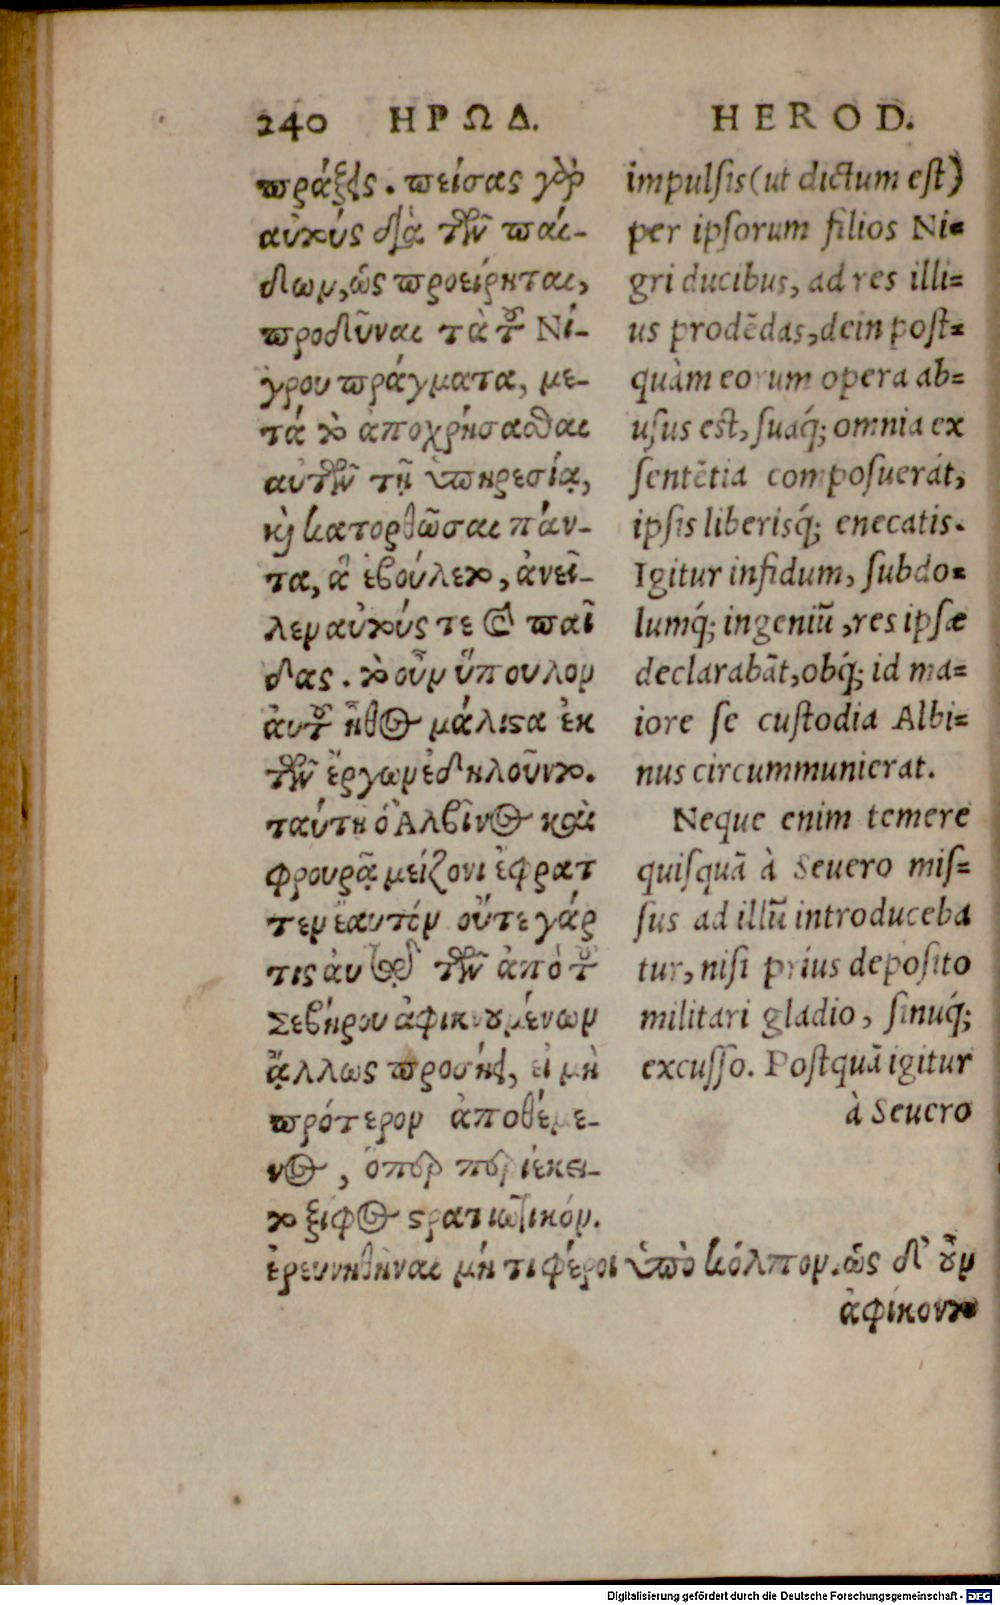 240 ΗΡΩΔ. HEROD.
πράξεις. πείσας γὰρ
αὐτούς διὰ τῶν παί-
δων, ὡς προείρηται,
προδοῦναι τὰ τοῦ Νί-
γρου πράγματα, με-
τά τὸ ἀποχρήσασθαι
αὐτῶν τῇ ὑπηρεσίᾳ,
καὶ κατορθῶσαι πάν-
τα, ἃ ἐβούλετο, ἀνεῖ-
λεν αὐτούς τε καὶ παῖ
δας. τὸ οὖν ὕπουλον
ἀυτοῦ ἦθος μάλιστα ἐκ
τῶν ἔργων ἐδηλοῦντο.
ταύτη ὁ Ἀλβῖνος καὶ
φρουρᾷ μείζονι ἐφρατ
τεν ἑαυτόν οὔτε γάρ
τις ἀυτῷ τῶν ἀπὸ τοῦ
Σεβήρου ἀφικνουμένων
ἄλλως προσήει, εἰ μὴ
πρότερον ἀποθέμε-
νος, ὅπερ περιέκει-
το ξίφος στρατιωτικόν.
ἐρευνηθῆναι μή τι φέροι ὑπὸ κόλπον. ὡς δ' οὖν
ἀφίκοντο
impulsis (ut dictum est)
per ipsorum filios Ni=
gri ducibus, ad res illi=
us prodēdas, dein post=
quàm eorum opera ab=
usus est, suaq́; omnia ex
sentētia composuerát,
ipsis liberisq́; enecatis.
Igitur infidum, subdo=
lumq́; ingeniū, res ipsæ
declarabāt, obq́; id ma=
iore se custodia Albi=
nus circummunierat.
Neque enim temere
quisquā à Seuero mis=
sus ad illū introduceba
tur, nisi prius deposito
militari gladio, sinuq́;
excusso. Postquā igitur
à Seuero
Digitalisierung gefördert durch die Deutsche Forschungsgemeinschaft - DFG